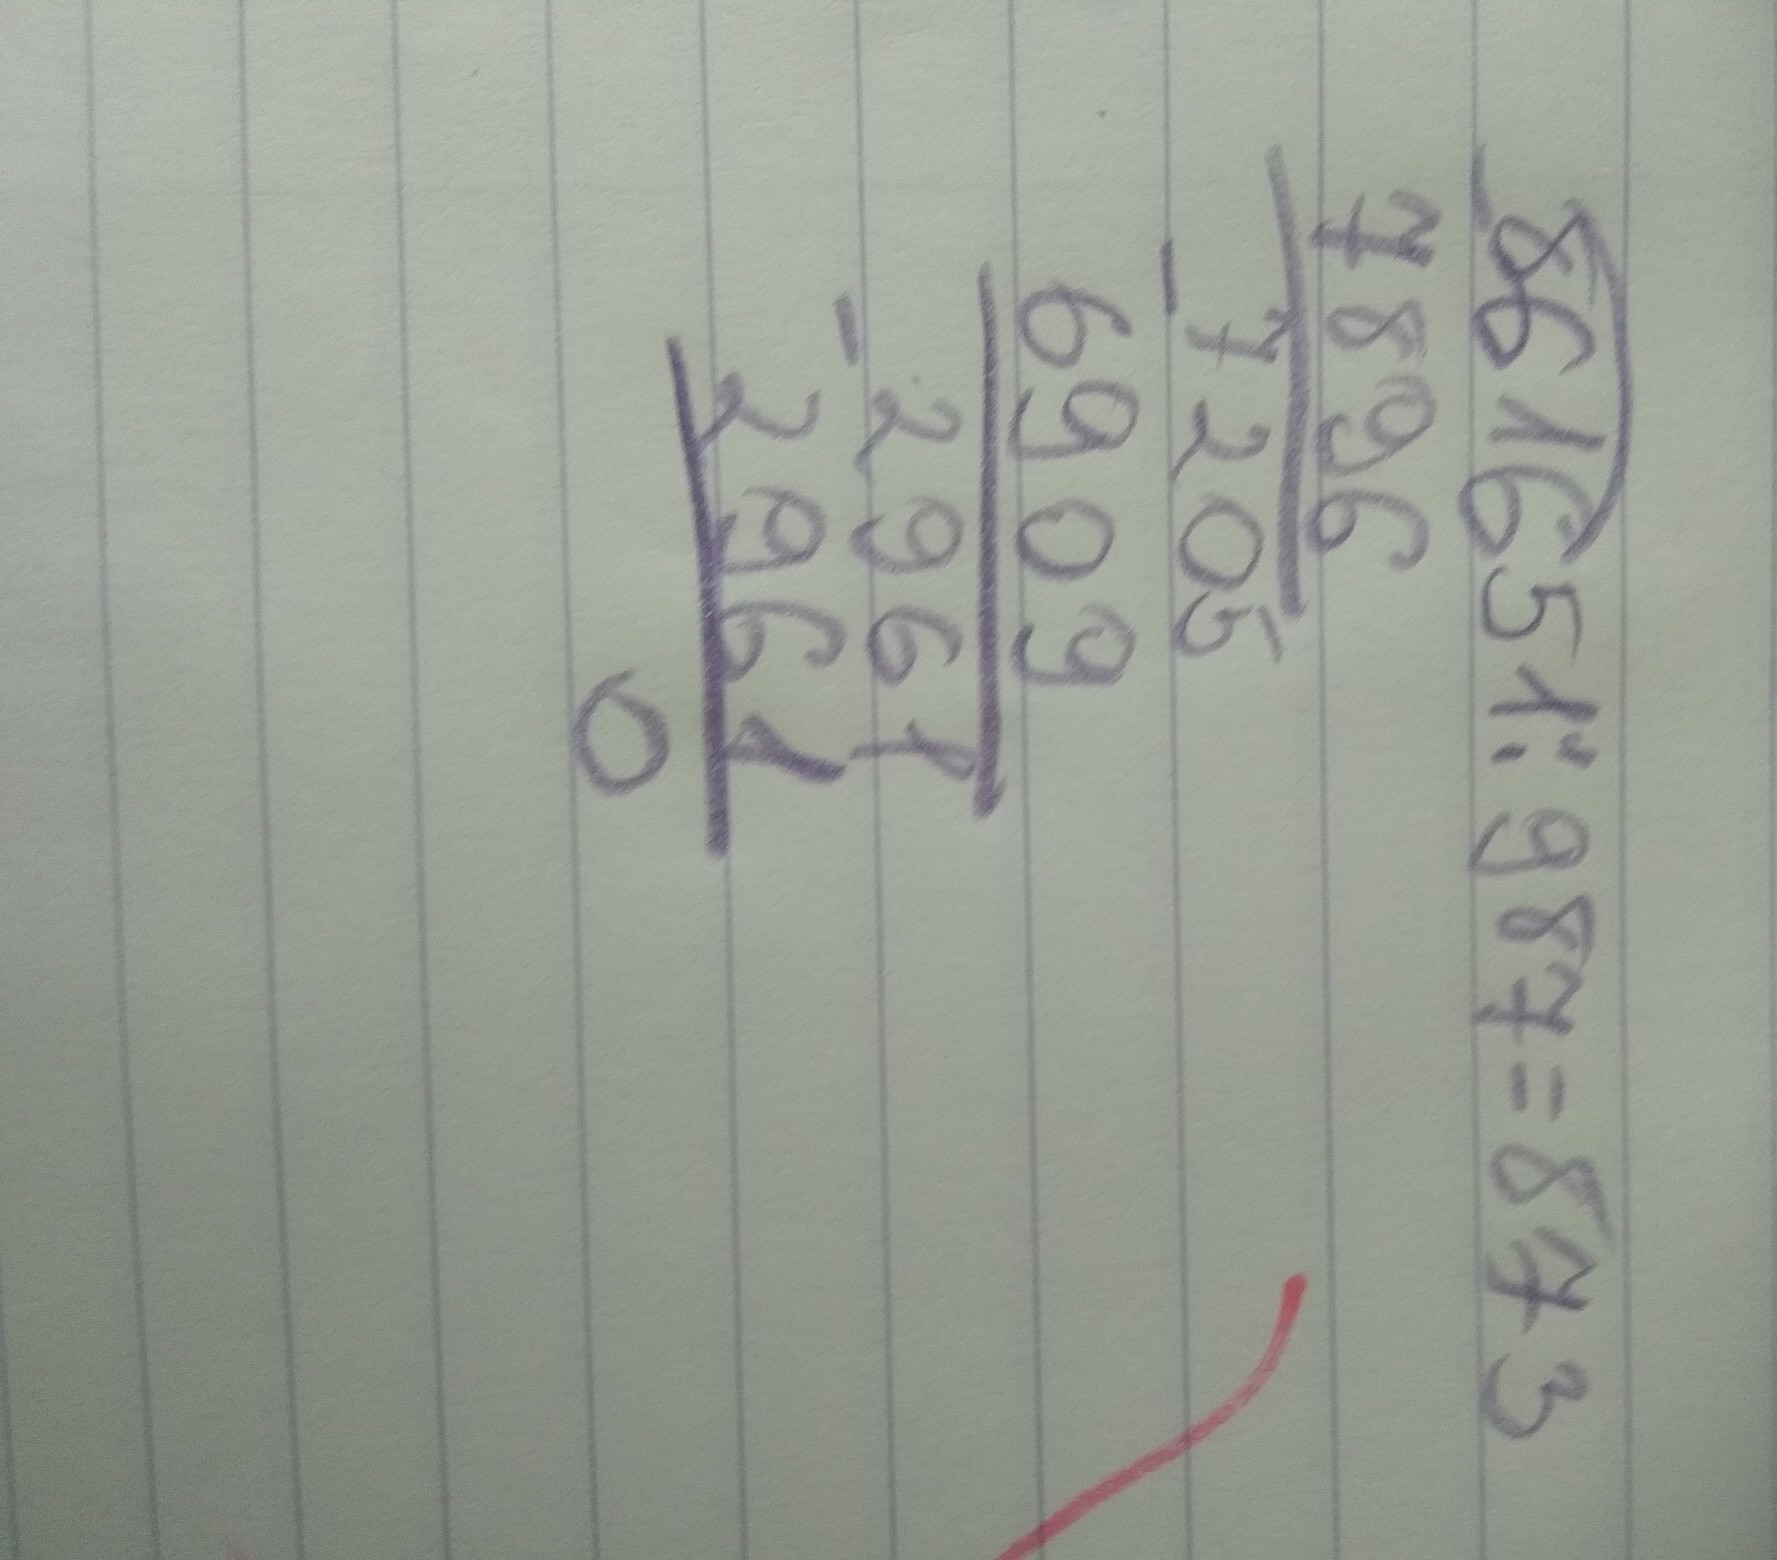 861651:987=873
- 7896
7205
- 6909
2961
- 2961
0